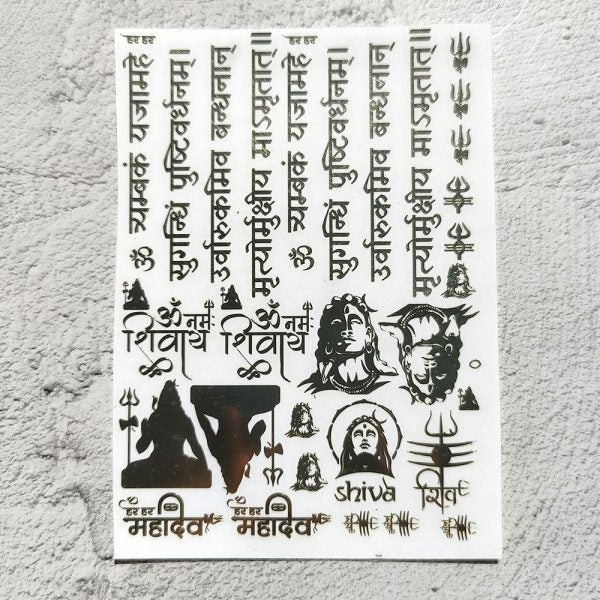 हर हर
ॐ त्र्यम्बकं यजामहे
सुगन्धिं पुष्टिवर्धनम्।
उर्वारुकमिव बन्धनान्
मृत्योर्मुक्षीय माऽमृतात्॥
हर हर
ॐ त्र्यम्बकं यजामहे
सुगन्धिं पुष्टिवर्धनम्।
उर्वारुकमिव बन्धनान्
मृत्योर्मुक्षीय माऽमृतात्॥
ॐ नमः
शिवाय
ॐ नमः
शिवाय
shiva
शिव
ॐ
हर हर
महादेव
ॐ
हर हर
महादेव